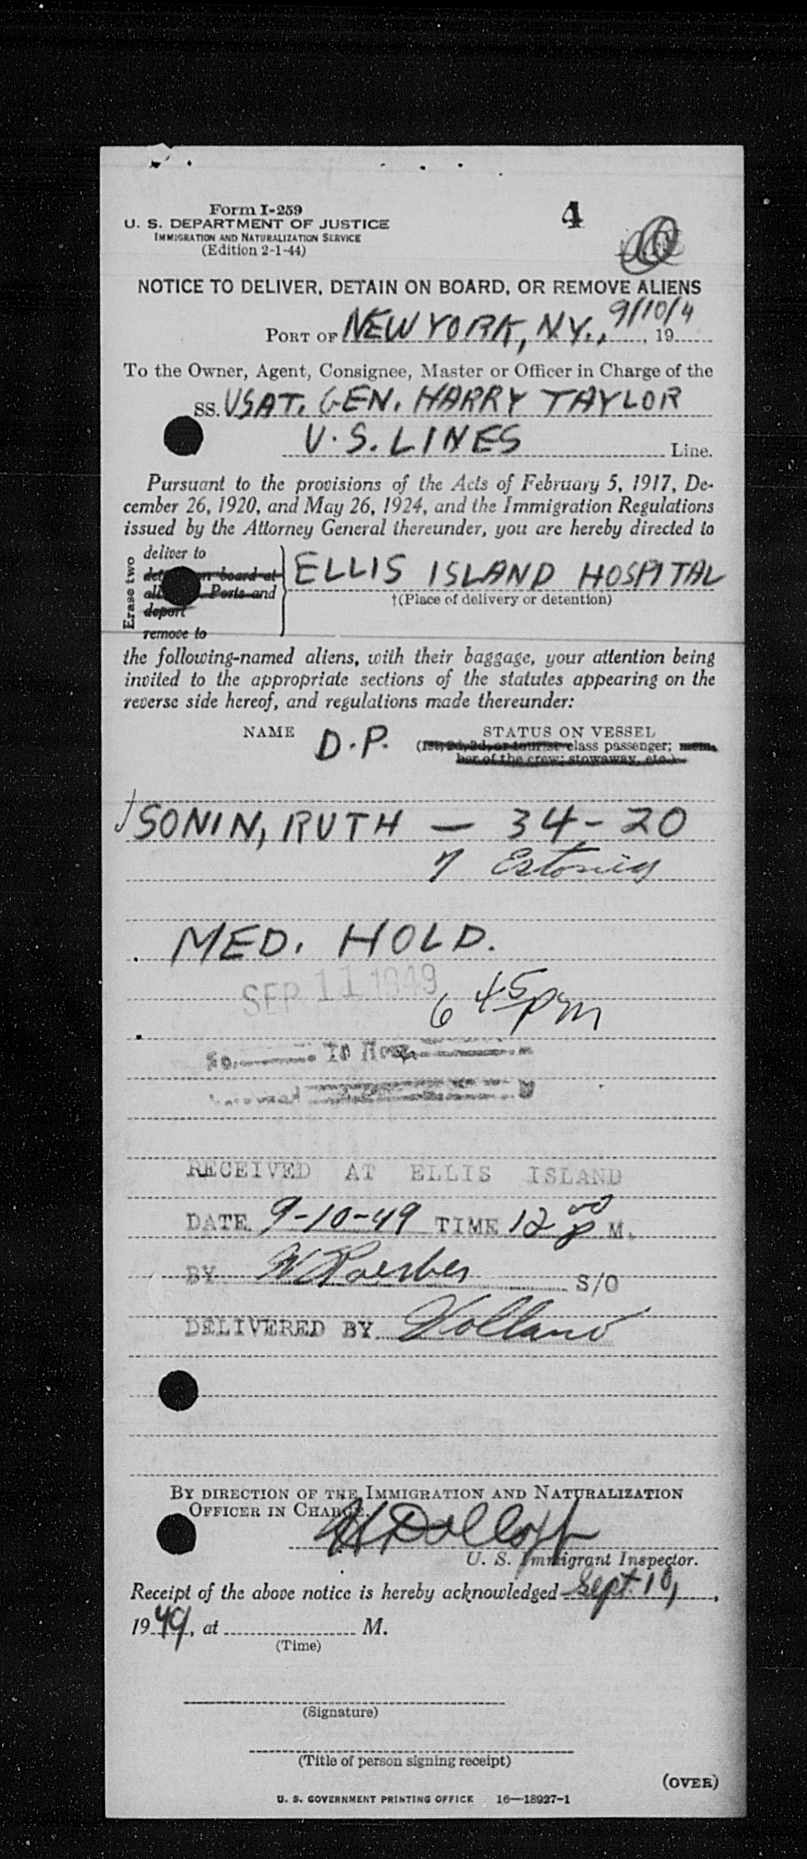 Form I-259
4
U. S. DEPARTMENT OF JUSTICE
IMMIGRATION AND NATURALIZATION SERVICE
(Edition 2-1-44)
NOTICE TO DELIVER, DETAIN ON BOARD, OR REMOVE ALIENS
PORT OF NEW YORK, N.Y., 9/10/4, 19
To the Owner, Agent, Consignee, Master or Officer in Charge of the
SS. USAT. GEN. HARRY TAYLOR
U.S. LINES Line.
Pursuant to the provisions of the Acts of February 5, 1917, De-
cember 26, 1920, and May 26, 1924, and the Immigration Regulations
issued by the Attorney General thereunder, you are hereby directed to
Erase two
deliver to
on board at
Ports and
deport
remove to
ELLIS ISLAND HOSPITAL
†(Place of delivery or detention)
the following-named aliens, with their baggage, your attention being
invited to the appropriate sections of the statutes appearing on the
reverse side hereof, and regulations made thereunder:
NAME D.P. STATUS ON VESSEL
(1st, 2d, 3d, or tourist class passenger; mem-
ber of the crew; stowaway, etc.)
SONIN, RUTH — 34-20
7 Estonia
MED. HOLD.
SEP 11 1949
6 45 pm
RECEIVED AT ELLIS ISLAND
DATE 9-10-49 TIME 12 00 P M.
BY S/O
DELIVERED BY Holland
BY DIRECTION OF THE IMMIGRATION AND NATURALIZATION
OFFICER IN CHARGE.
H Dolloff
U. S. Immigrant Inspector.
Receipt of the above notice is hereby acknowledged Sept. 10,
1949, at M.
(Time)
(Signature)
(Title of person signing receipt)
(OVER)
U. S. GOVERNMENT PRINTING OFFICE 16—18927-1